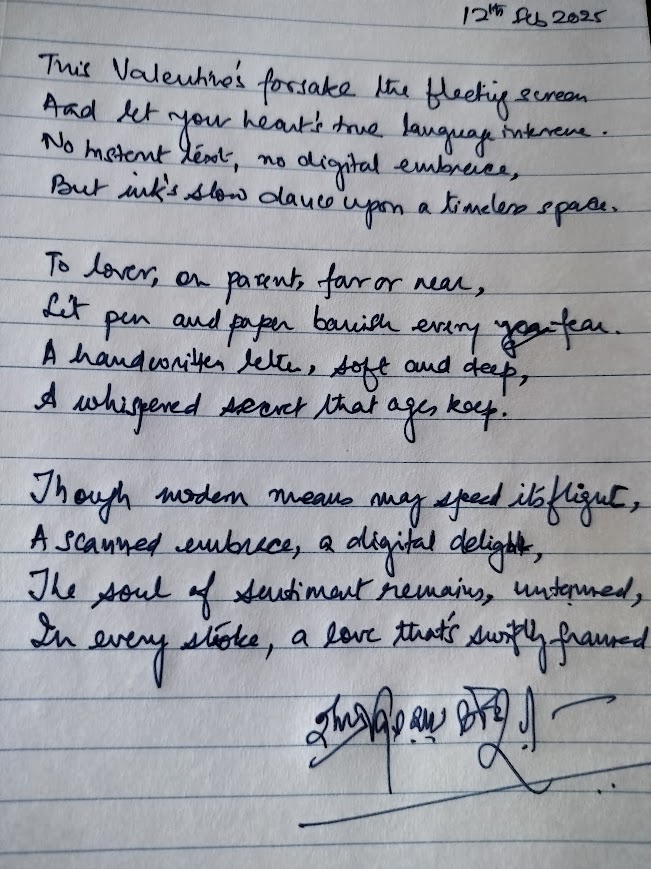 12th Feb 2025
This Valentine's forsake the fleeting screen
And let your heart's true language intervene.
No instant text, no digital embrace,
But ink's slow dance upon a timeless space.
To lover, or parent, far or near,
Let pen and paper banish every fear.
A handwritten letter, soft and deep,
A whispered secret that ages keep.
Though modern means may speed its flight,
A scanned embrace, a digital delight,
The soul of sentiment remains, untamed,
In every stroke, a love that's swiftly framed